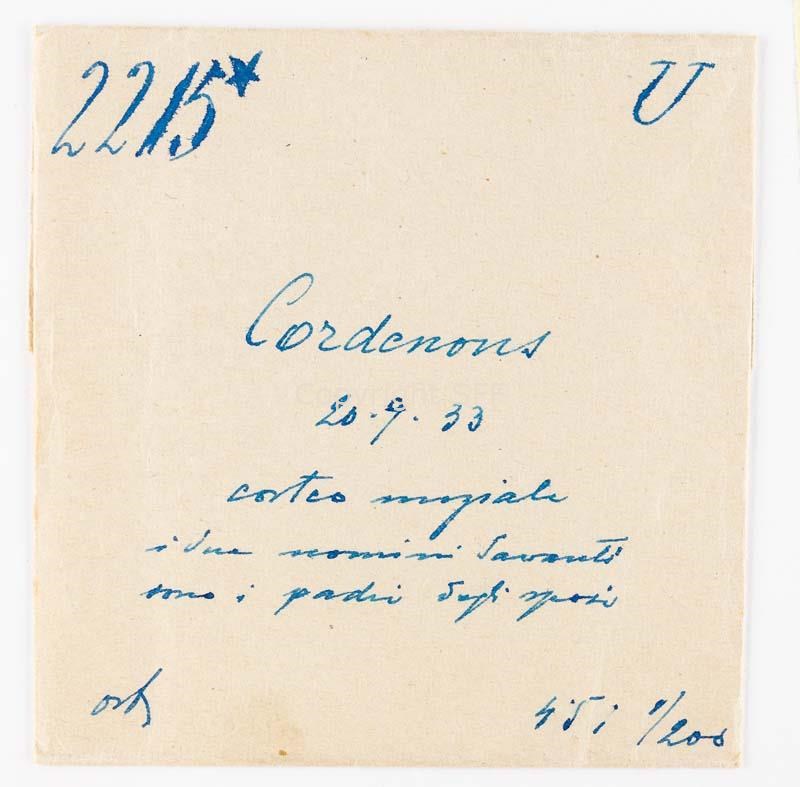 2215* U
Cordenons
20.9.33
corteo nuziale
i due uomini davanti
sono i padri degli sposi
4.5 i 1/200